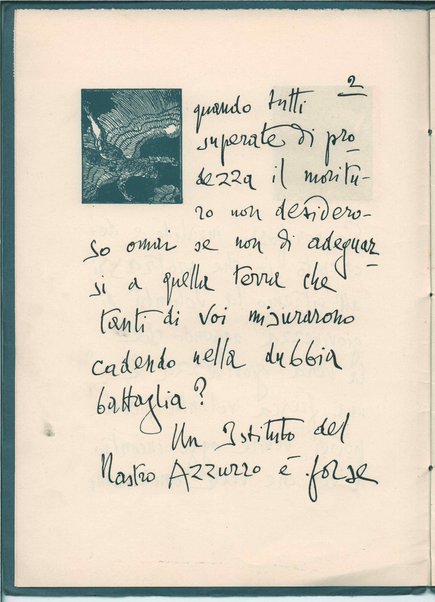 2
quando tutti
superate di pro
dezza il moritu-
ro non desidero-
so omai se non di adeguar
si a quella terra che
tanti di voi misurarono
cadendo nella dubbia
battaglia?
Un Istituto del
Nastro Azzurro è forse